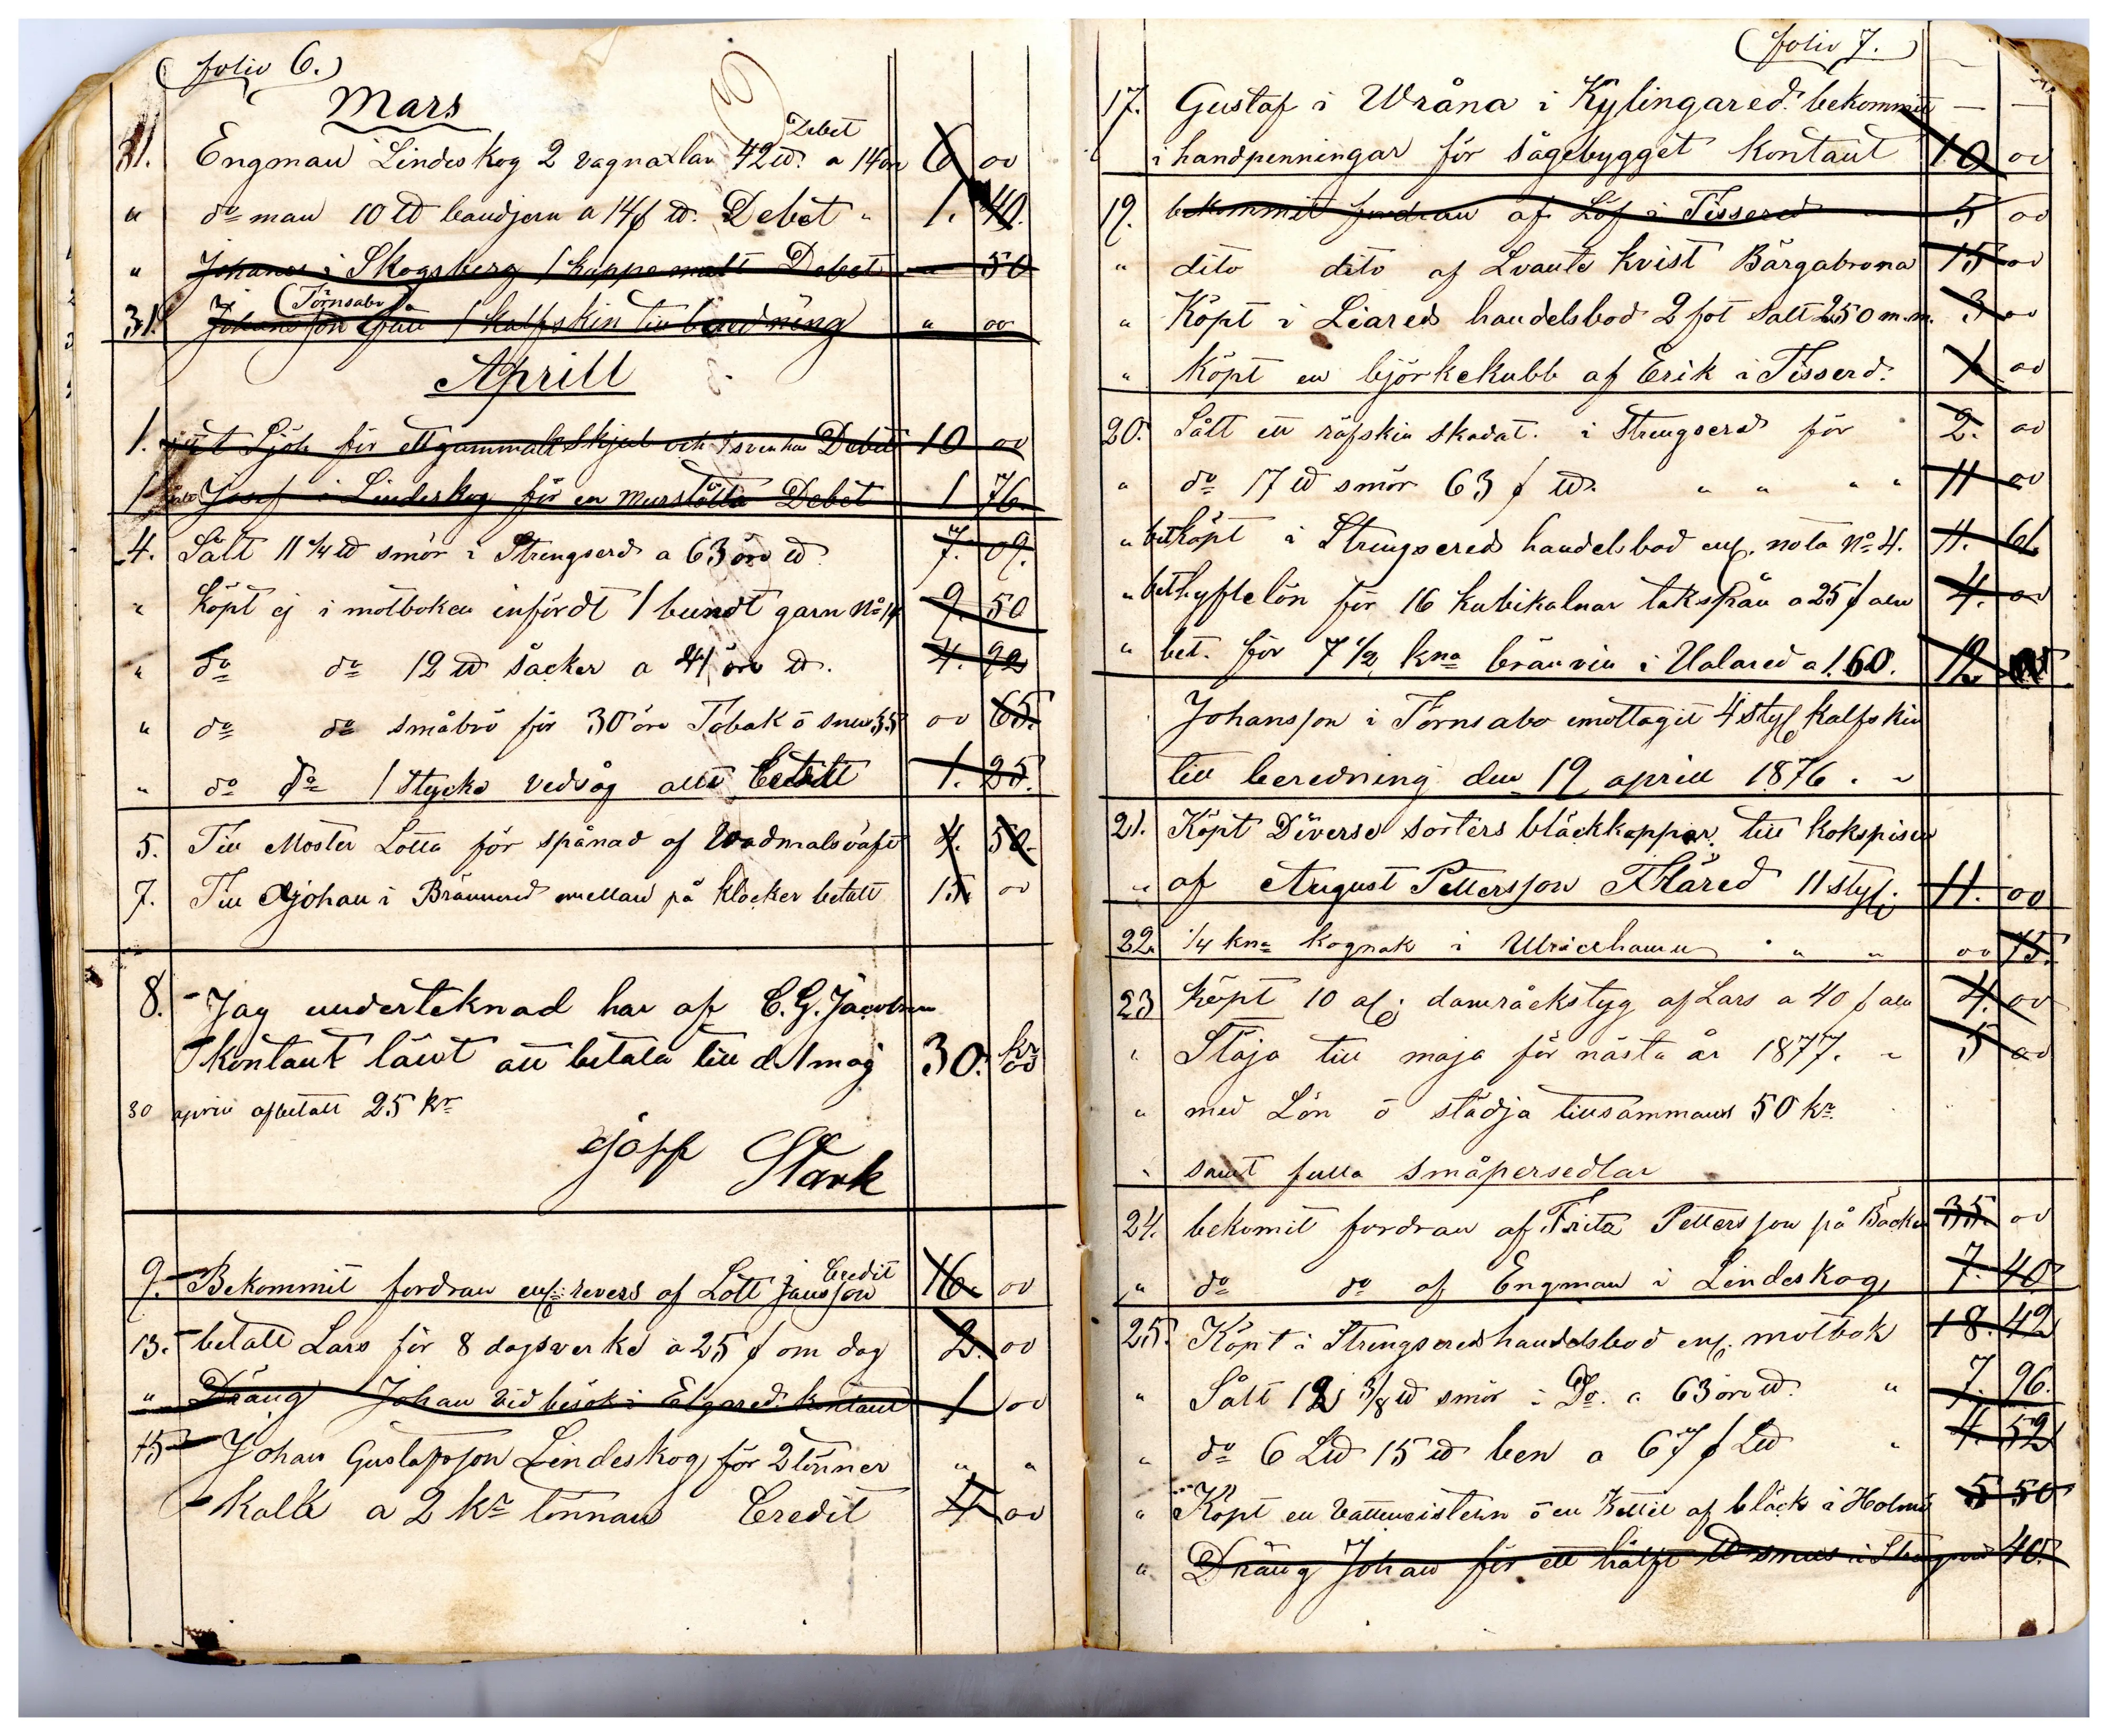 (folio 6.)
Mars
Debet
31. Engman Lindeskog 2 vagnaxlar 42 ℔. a 14 ör 6 00
" do man 10 ℔ bandjern a 14 f ℔. Debet " 1. 40.
" Johanes i Skogsberg 1 kappe malt Debet " 50
(Törnsabo)
31. Johansson 1 kalfskin till beredning " 00
Aprill
1. Sjöh för ett gammalt Skjul och 1 svenka Debet 10 00
1 Josef i Lindeskog för en murslötta Debet 1 76.
4. Sålt 11 1/4 ℔ smör i Strengserd a 63 öre ℔. 7. 09.
" köpt ej i motboken infördt 1 bundt garn No 14 9. 50
" do do 12 ℔ såcker a 41 öre ℔. 4. 92
" do do småbrö för 30 öre Tobak ö snus 35 00 65.
" do do 1 stycke vedsåg allt betalt 1. 25.
5. Till Moster Lotta för spånad af Wadmalsväft 4. 50.
7. Till Johan i Brännered emellan på klocker betalt 15. 00
8. Jag underteknad har af C. G. Jacobson
kontant länt att betala till d. 1 maj 30. kr 00
30 april afbetalt 25 kr
Stark
Credit
9. Bekommit fordran enl. revers af Lott Jansson 16. 00
13. betalt Lars för 8 dagsverke a 25 f om dag 2. 00
" Dräng Johan vid besök i Elgared. kontant 1 00
15 Johan Gustafsson Lindeskog för 2 tönner " "
kalk a 2 kr tönnan Credit 4 00
(folio 7.)
17. Gustaf i Wråna i Kylingared. bekommit — —
i handpenningar för sågebygget kontant 10 00
19. bekommit fordran af Löf i Tisserd 5 00
" dito dito af Svante kvist Bärgabrona 15 00
" Köpt i Liareds handelsbod 2 fot salt 250 m.m. 3 00
" köpt en björkekubb af Erik i Tisserd. 1 00
20. Sålt ett räfskin skadat. i Strengserd för " 2. 00
" do 17 ℔ smör 63 f ℔. " " " " 11 00
" bet köpt i Strengsereds handelsbod enl. nota No 4. 11. 61
" bet hyftelön för 16 kubikalnar takspån a 25 f aln 4. 00
" bet. för 7 1/2 kna bränvin i Ualared a 1.60. 12
Johansson i Törnsabo emottagit 4 styc kalfskin
till beredning den 19 aprill 1876. "
21. Köpt Diverse sorters bläckkoppar till kokspisen
" af August Pettersson Flåred 11 sty. 11. 00
22. 1/4 kna kognak i Ulricehamn " " " 00 75.
23 köpt 10 al: damråckstyg af Lars a 40 f aln 4. 00
" Stäja till maja för nästa år 1877. " 5 00
" med Lön ö städja tillsammans 50 kr.
" samt fulla småpersedlar
24. bekomit fordran af Fritz Pettersson på Backen 35. 00
" do do af Engman i Lindeskog 7. 40.
25. Köpt i Strengsereds handelsbod enl. motbok 18. 42
" Sålt 12 3/8 ℔ smör i Do. a 63 öre ℔. " 7. 96.
" do 6 L℔ 15 ℔ ben a 67 f L℔ " 4. 52
" Köpt en ö en Kettil af bläck i Holmö 5 50
" Dräng Johan för ett hälft ℔ snus i 40.